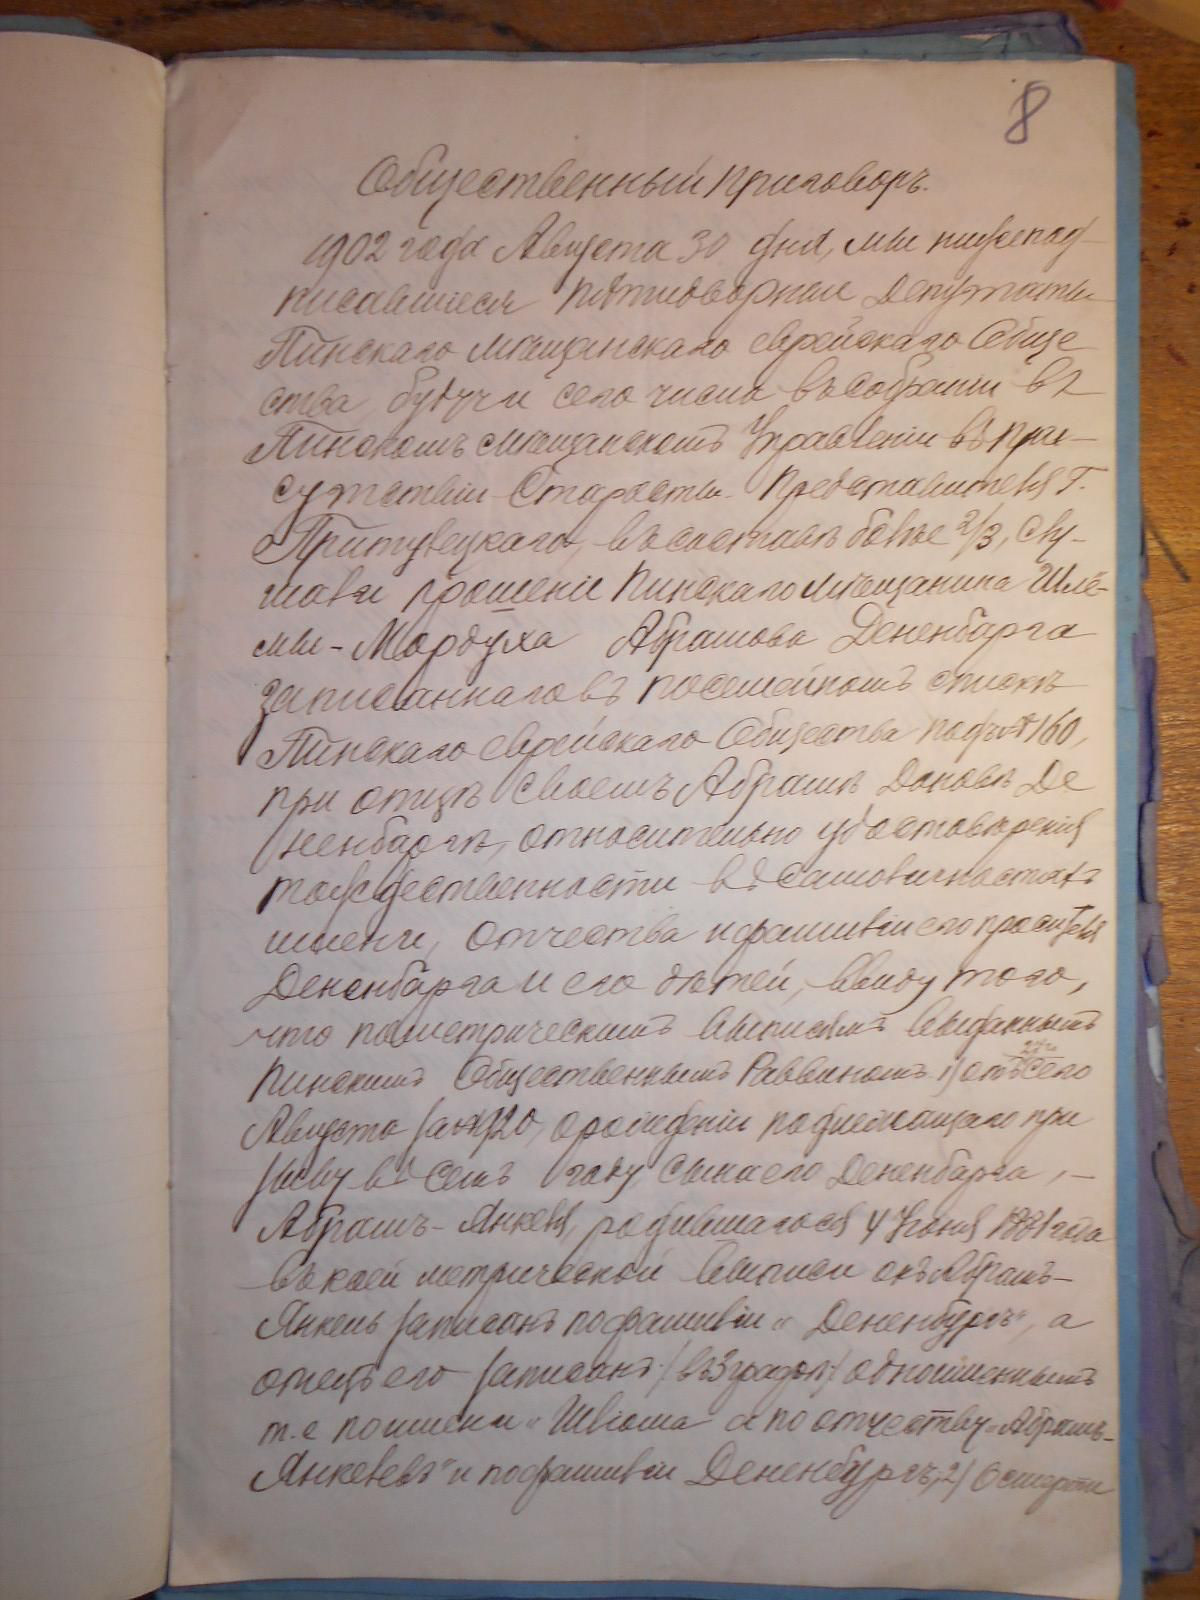 8
Общественный приговоръ.
1902 года Августа 30 дня, мы нижепод-
писавшiеся Пятидворные Депутаты
Пинскаго мѣщанскаго еврейскаго Обще
ства, будучи сего числа въ собранiи въ
Пинскомъ мѣщанскомъ Управленiи въ при-
сутствiи Старосты Представителя Г.
въ составѣ болѣе 2/3, слу-
шали прошенiе Пинскаго мѣщанина Шлё-
мы-Мордуха Абрамова Дененбарга
записаннаго въ посемейномъ спискѣ
Пинскаго еврейскаго Общества подъ № 160,
при отцѣ своемъ Абрамѣ Де
ненбаргѣ, относительно удостовѣренiя
тождественности въ самоличностяхъ
имени, отчества и фамилiи его просителя
Дененбарга и его дѣтей, ввиду того,
что по метрическимъ выписямъ выданнымъ
Пинскимъ Общественнымъ Раввиномъ 1/ отъ сего
Августа за № 920, о рожденiи подлежащаго при
зыву въ семъ году, сына его Дененбарга, -
Абрамъ-Янкеля, родившагося 4 Iюня 1881 года
въ коей метрической выписи онъ Абрамъ-
Янкель записанъ по фамилiи „Дененбургъ“, а
отецъ его записанъ /въ 3 графѣ/ одноименнымъ
т.е по имени „Шлiома а по отчеству „Абрамъ-
Янкелевъ“ и по фамилiи Дененбургъ, 2/ О смерти